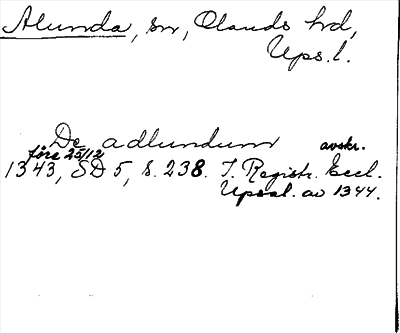 Alunda, sn, Olands hd,
Ups. l.
De adlundum avskr.
före 25/12
1343, SD 5, s. 238. I. Registr. Eccl.
Upsal. av 1344.